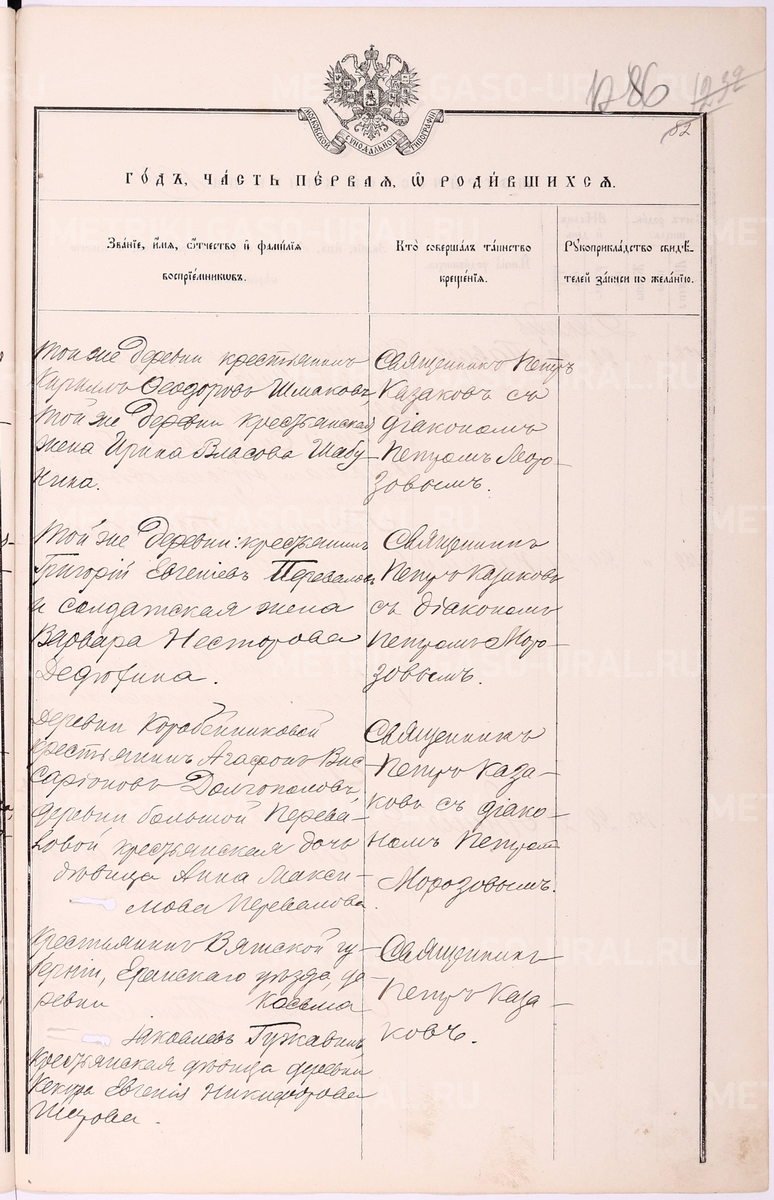 1286
1232
82
МОСКОВСКОЙ СѴНОДАЛЬНОЙ ТИПОГРАФІИ
ГО́ДЪ, ЧА́СТЬ ПЕ́РВАЯ, Ѡ҆ РОДИ́ВШИХСѦ.
Зва́нїе, и҆́мѧ, ѻ҆́тчество и҆ фами́лїѧ
воспрїе́мникѡвъ.
Кто̀ соверша́лъ та́инство
креще́нїѧ.
Рꙋкоприкла́дство свидѣ́-
телей за́писи по жела́нїю.
Той же деревни крестьянинъ
Кириллъ Ѳеодоровъ Шмаковъ,
той же деревни крестьянская
жена Ирина Власова Шабу-
нина.
Священникъ Петръ
Казаковъ съ
діакономъ
Петромъ Моро-
зовымъ.
Той же деревни: крестьянинъ
Григорій Евгеніевъ Переваловъ
и солдатская жена
Варвара Несторова
Дедюхина.
Священникъ
Петръ Казаковъ
съ діакономъ
Петромъ Моро-
зовымъ.
Деревни Коробейниковой
крестьянинъ Агафонъ Вис-
саріоновъ Долгополовъ,
деревни большой Перева-
ловой крестьянская дочь
дѣвица Анна Макси-
мова Перевалова.
Священникъ
Петръ Каза-
ковъ съ діако-
номъ Петромъ
Морозовымъ.
Крестьянинъ Вятской гу-
берніи, Яранскаго уѣзда, де-
ревни Косьма
Іаковлевъ
крестьянская дѣвица деревни
Евгенія Никифорова
Священникъ
Петръ Каза-
ковъ.